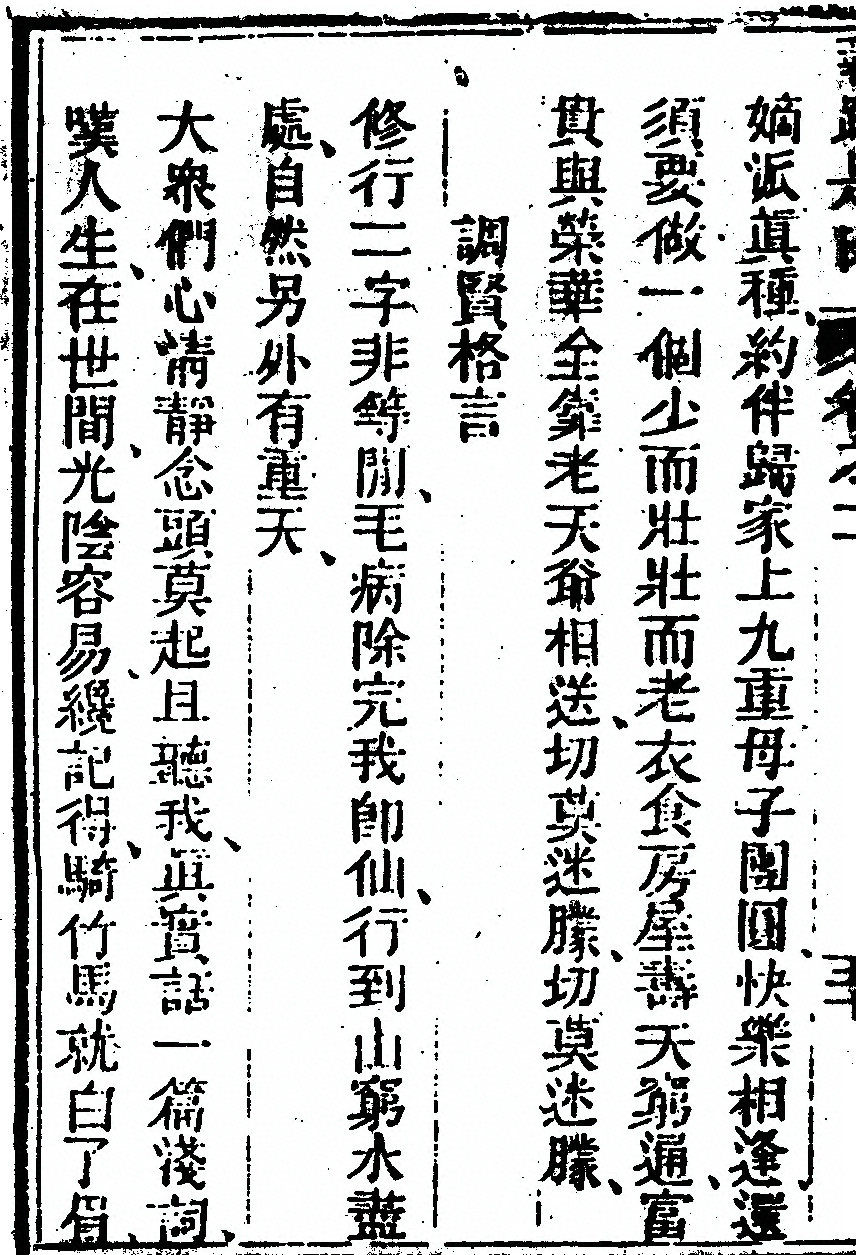 嫡派眞種、約伴歸家上九重母子團圓、快樂相逢、還
須要做一個少而壯壯而老衣食房屋壽夭窮通、富
貴與榮華全靠老天爺相送、切莫迷朦、切莫迷朦、
調賢格言
修行二字非等閒、毛病除完我卽仙、行到山窮水盡
處、自然另外有重天、
大衆們心清靜念頭莫起且聽我、眞實話一篇淺詞、
嘆人生、在世間、光陰容易、纔記得、騎竹馬就白了眉、